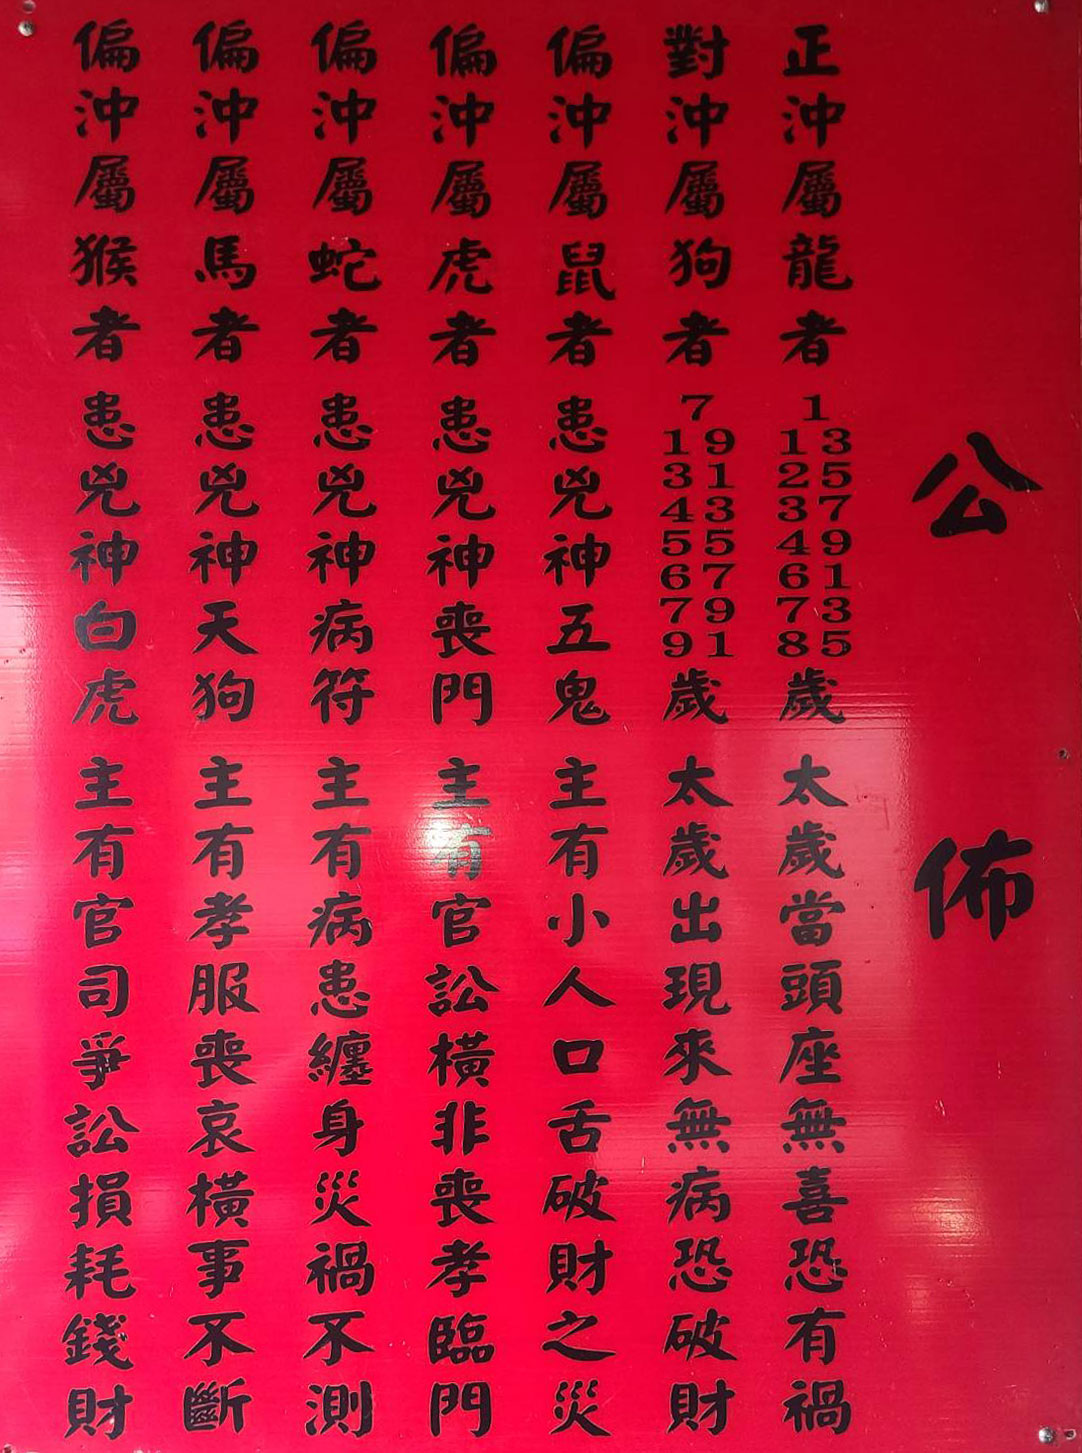 公佈
正沖屬龍者 1 13 25 37 49 61 73 85 歲太歲當頭座無喜恐有禍
對沖屬狗者 7 19 31 43 55 67 79 91 歲太歲出現來無病恐破財
偏沖屬鼠者患兇神五鬼主有小人口舌破財之災
偏沖屬虎者患兇神喪門主有官訟橫非喪孝臨門
偏沖屬蛇者患兇神病符主有病患纏身災禍不測
偏沖屬馬者患兇神天狗主有孝服喪哀橫事不斷
偏沖屬猴者患兇神白虎主有官司爭訟損耗錢財